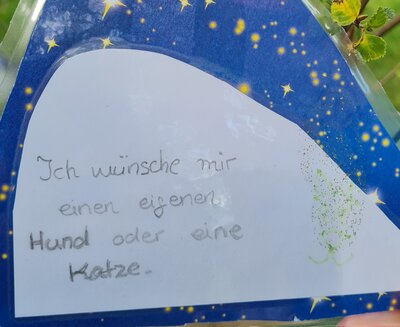 Ich wünsche mir
einen eigenen
Hund oder eine
Katze.